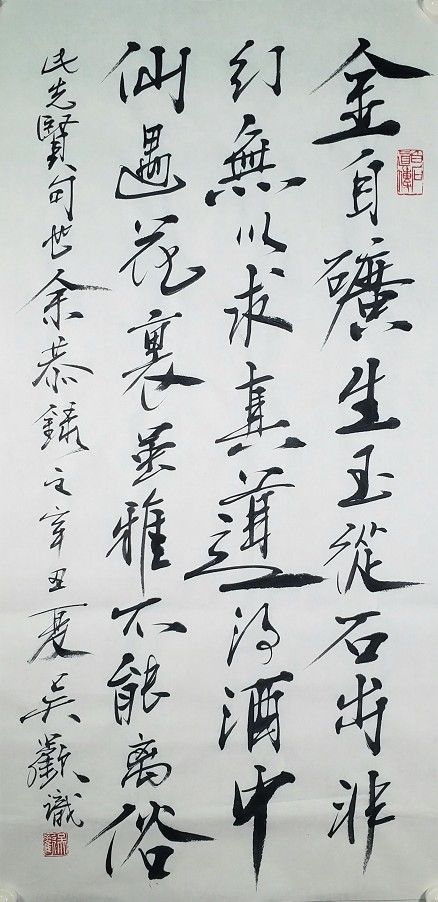 金自礦生玉從石出非
幻無以求真道得酒中
仙遇花裏虽雅不能离俗
此先賢句也余恭錄之辛丑夏吳歡識